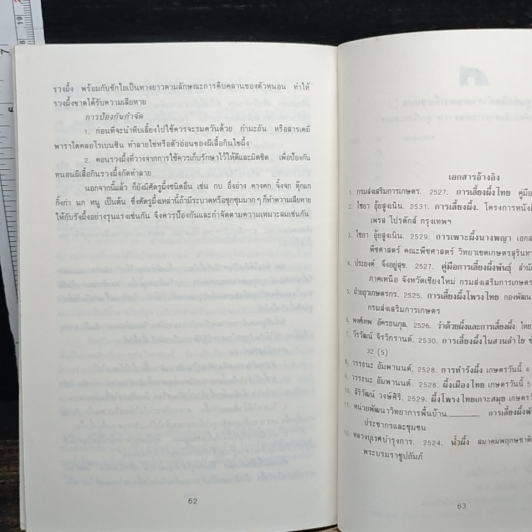 รวงผึ้ง พร้อมกับชักใยเป็นทางยาวตามลักษณะการคืบคลานของตัวหนอน ทำให้
รวงผึ้งขาดได้รับความเสียหาย
การป้องกันกำจัด
1. ก่อนที่จะนำหีบเลี้ยงไปใช้ควรจะรมควันด้วย กำมะถัน หรือสารเคมี
พาราไดคลอโรเบนซิน ทำลายไข่หรือตัวอ่อนของผีเสื้อกินไขผึ้ง
2. คอนรวงผึ้งที่วางจากการใช้ควรเก็บรักษาไว้ให้ดีและมิดชิด เพื่อป้องกัน
หนอนผีเสื้อกินรวงผึ้งกัดทำลาย
นอกจากนี้แล้ว ก็ยังมีศัตรูผึ้งชนิดอื่น เช่น กบ อึ่งอ่าง คางคก จิ้งจก ตุ๊กแก
กิ้งก่า นก หนู เป็นต้น ซึ่งศัตรูผึ้งเหล่านี้ถ้ามีระบาดหรือชุกชุมมาก ๆ ก็ทำความเสียหาย
ให้กับรังผึ้งอย่างรุนแรงเช่นกัน จึงควรป้องกันและกำจัดตามความเหมาะสมเช่นกัน
62
เอกสารอ้างอิง
1. กรมส่งเสริมการเกษตร. 2527. การเลี้ยงผึ้งไทย คู่มือ
2. ไชยา อุ้ยสูงเนิน. 2531. การเลี้ยงผึ้ง. โครงการหนัง
เพรส โปรดักส์ กรุงเทพฯ
3. ไชยา อุ้ยสูงเนิน. 2529. การเพาะผึ้งนางพญา เอกส
พืชศาสตร์ คณะพืชศาสตร์ วิทยาเขตเกษตรสุรินทร
4. ประยงค์ จึงอยู่สุข. 2527. คู่มือการเลี้ยงผึ้งพันธุ์ สำนัก
ภาคเหนือ จังหวัดเชียงใหม่ กรมส่งเสริมการเกษตร
5. ฝ่ายอุเกษตรกร. 2525. การเลี้ยงผึ้งโพรงไทย กองพัฒน
กรมส่งเสริมการเกษตร
6. พงศ์เทพ อัครธนกุล. 2526. ว่าด้วยผึ้งและการเลี้ยงผึ้ง ไทย
7. วีรวัฒน์ จิรวิกรานต์. 2530. การเลี้ยงผึ้งในสวนลำไย
32 (5)
8. วรรธนะ อัมพานนต์. 2528. การทำรังผึ้ง เกษตรวันนี้ 4
9. วรรธนะ อัมพานนต์. 2528. ผึ้งเมืองไทย เกษตรวันนี้ 5
10. สิริวัฒน์ วงษ์ศิริ. 2529. ผึ้งโพรงไทยเกาะสมุย เกษตรวัน
11. หน่วยพัฒนาวิทยาการพื้นบ้าน________ การเลี้ยงผึ้งพั
ประชากรและชุมชน
12. หลวงบุเรศบำรุงการ. 2524. น้ำผึ้ง สมาคมพฤกษชาติ
พระบรมราชูปถัมภ์
63